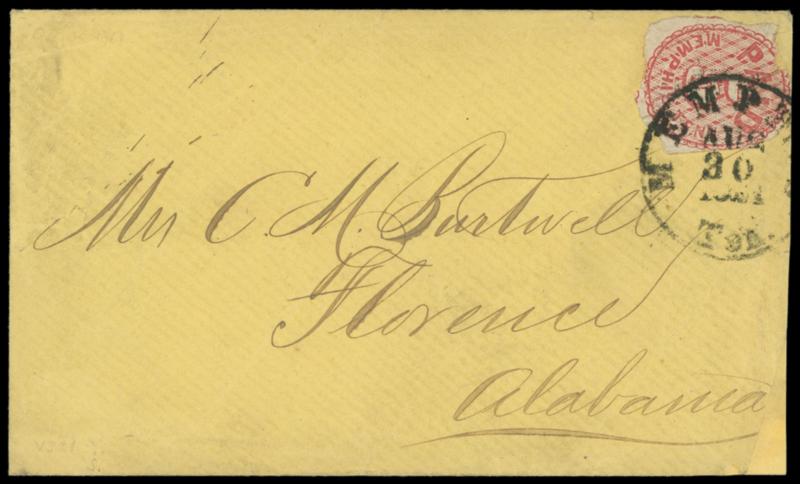 PAID
MEMPHIS
MEMPH
AUG
30
1861
Ten.
Mrs C. M. Burtwell
Florence
Alabama